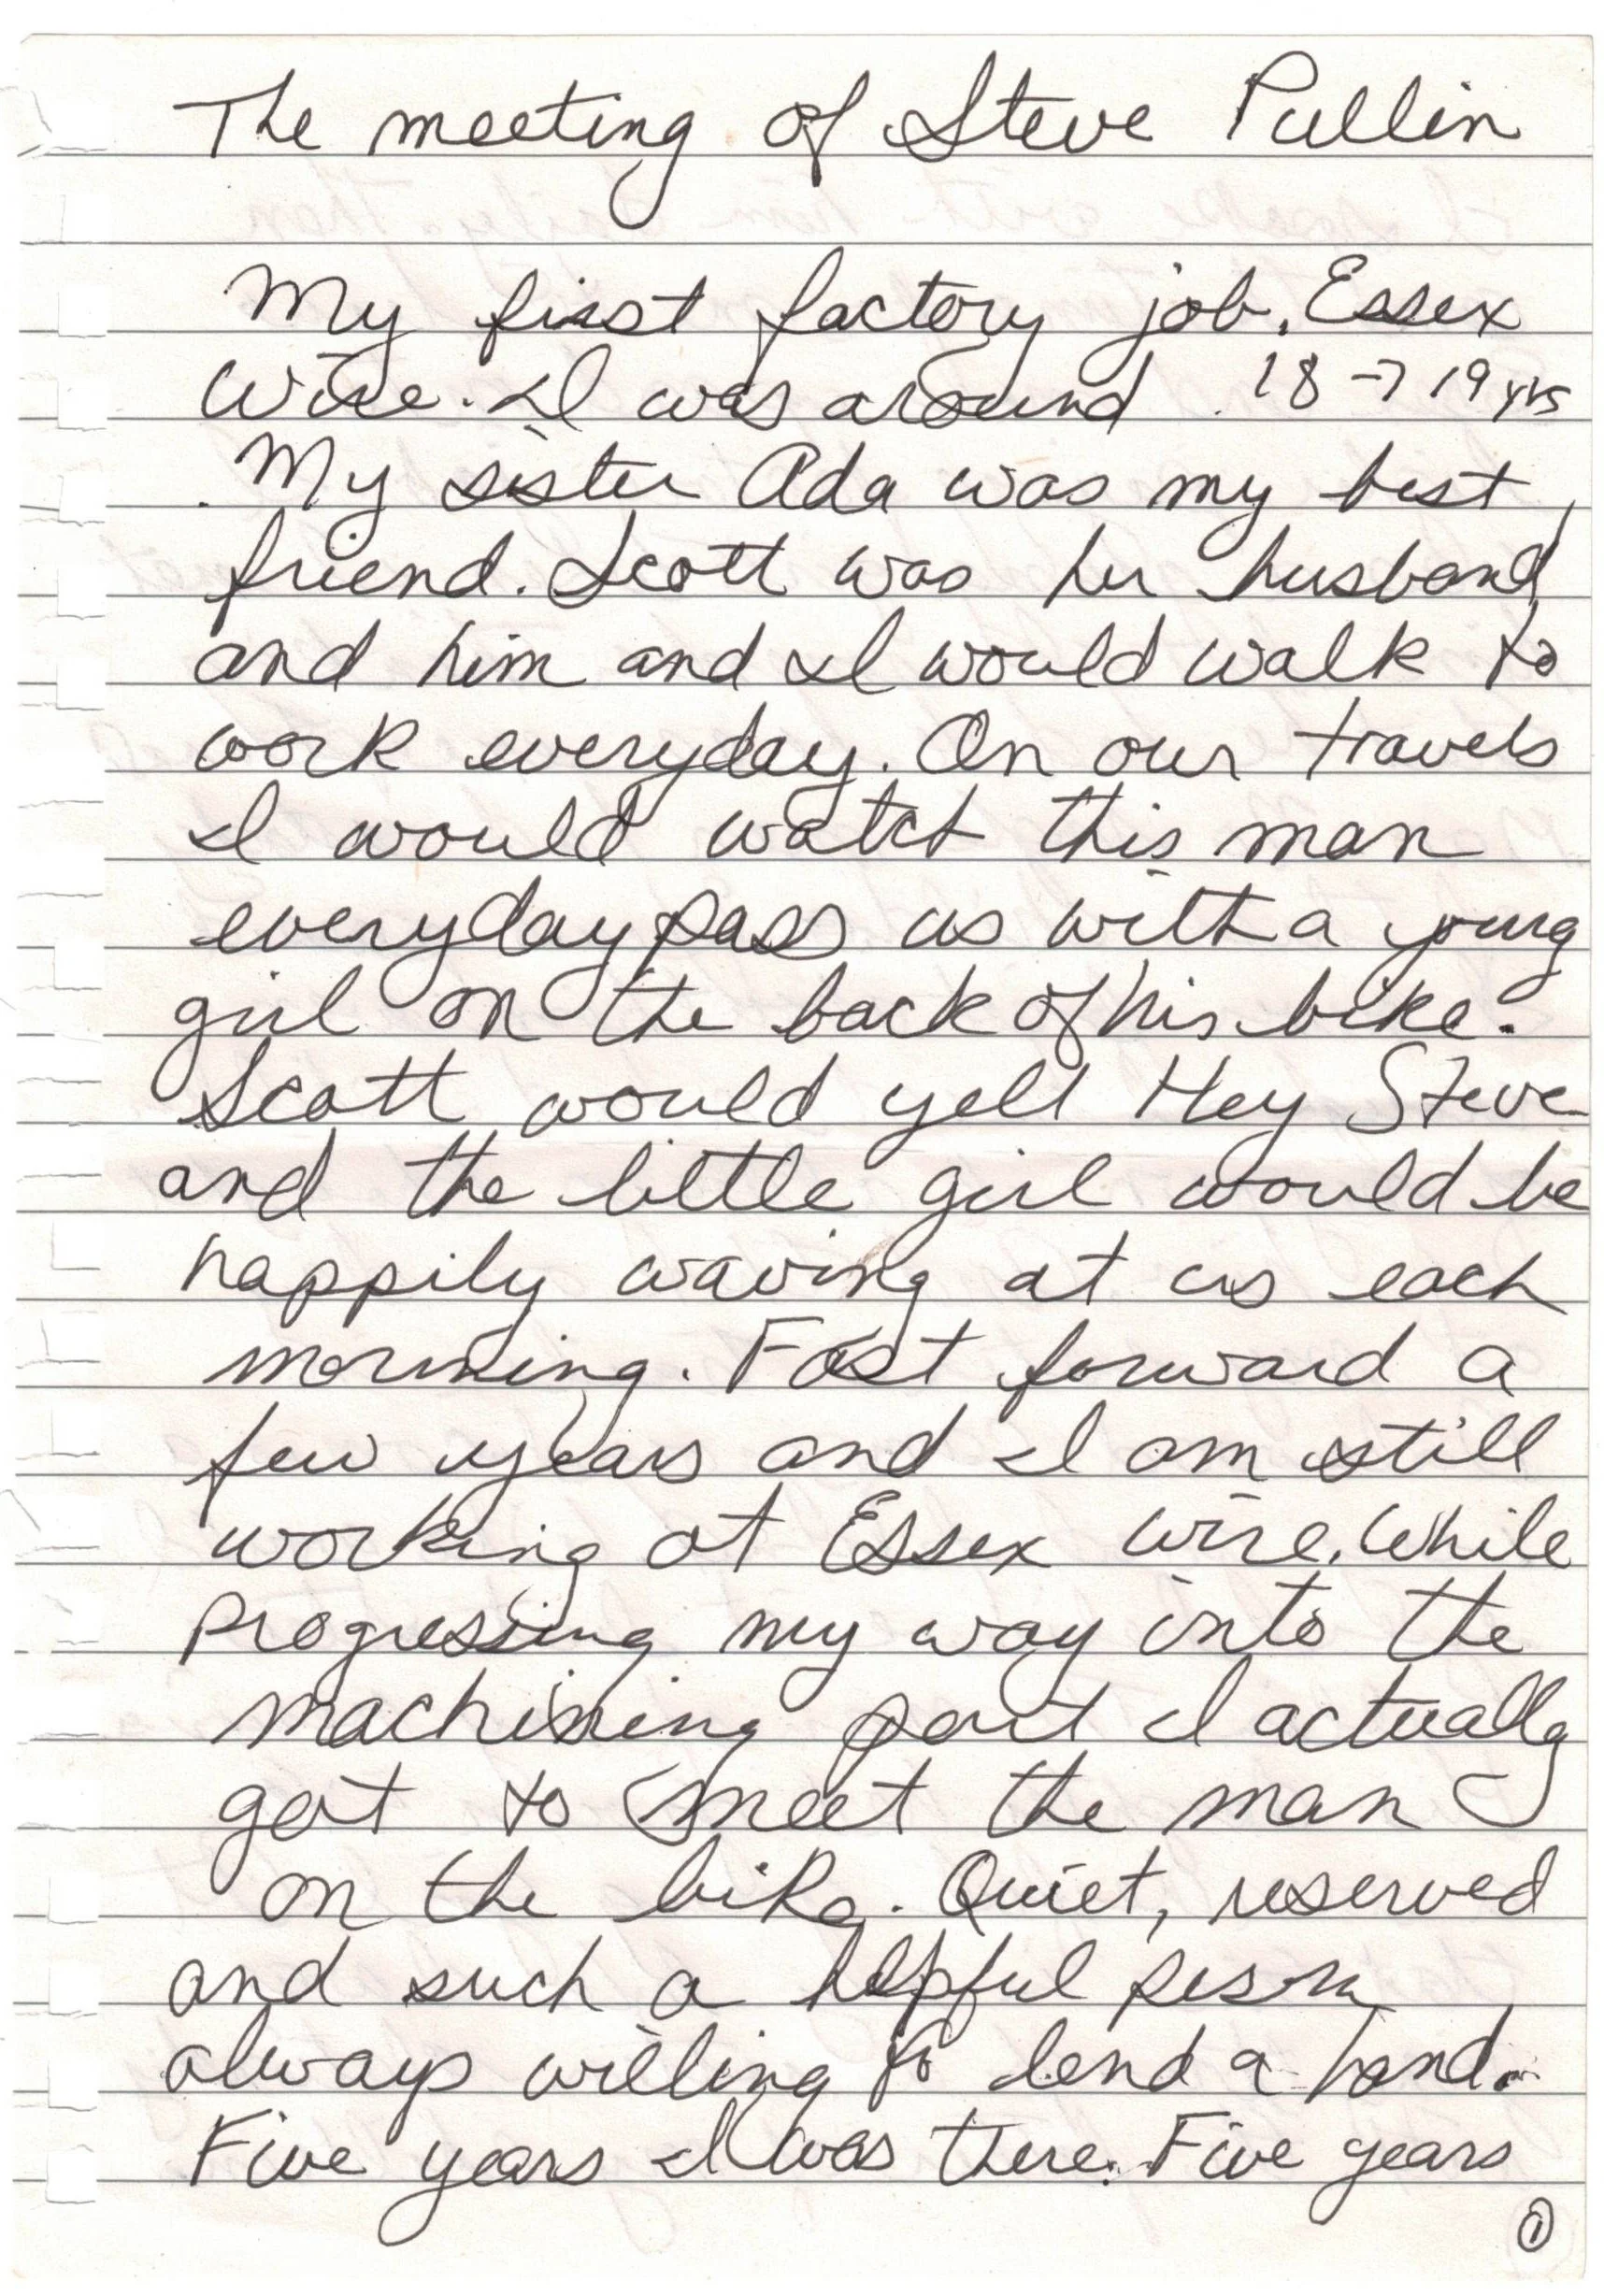 The meeting of Steve Pullin
My first factory job. Essex
Wire. I was around 18 → 19 yrs
My sister Ada was my best
friend. Scott was her husband
and him and I would walk to
work everyday. On our travels
I would watch this man
everyday pass us with a young
girl on the back of his bike.
Scott would yell Hey Steve
and the little girl would be
happily waving at us each
morning. Fast forward a
few years and I am still
working at Essex wire. While
progressing my way into the
machining part I actually
got to meet the man
on the bike. Quiet, reserved
and such a helpful person
always willing to lend a hand.
Five years I was there. Five years
1